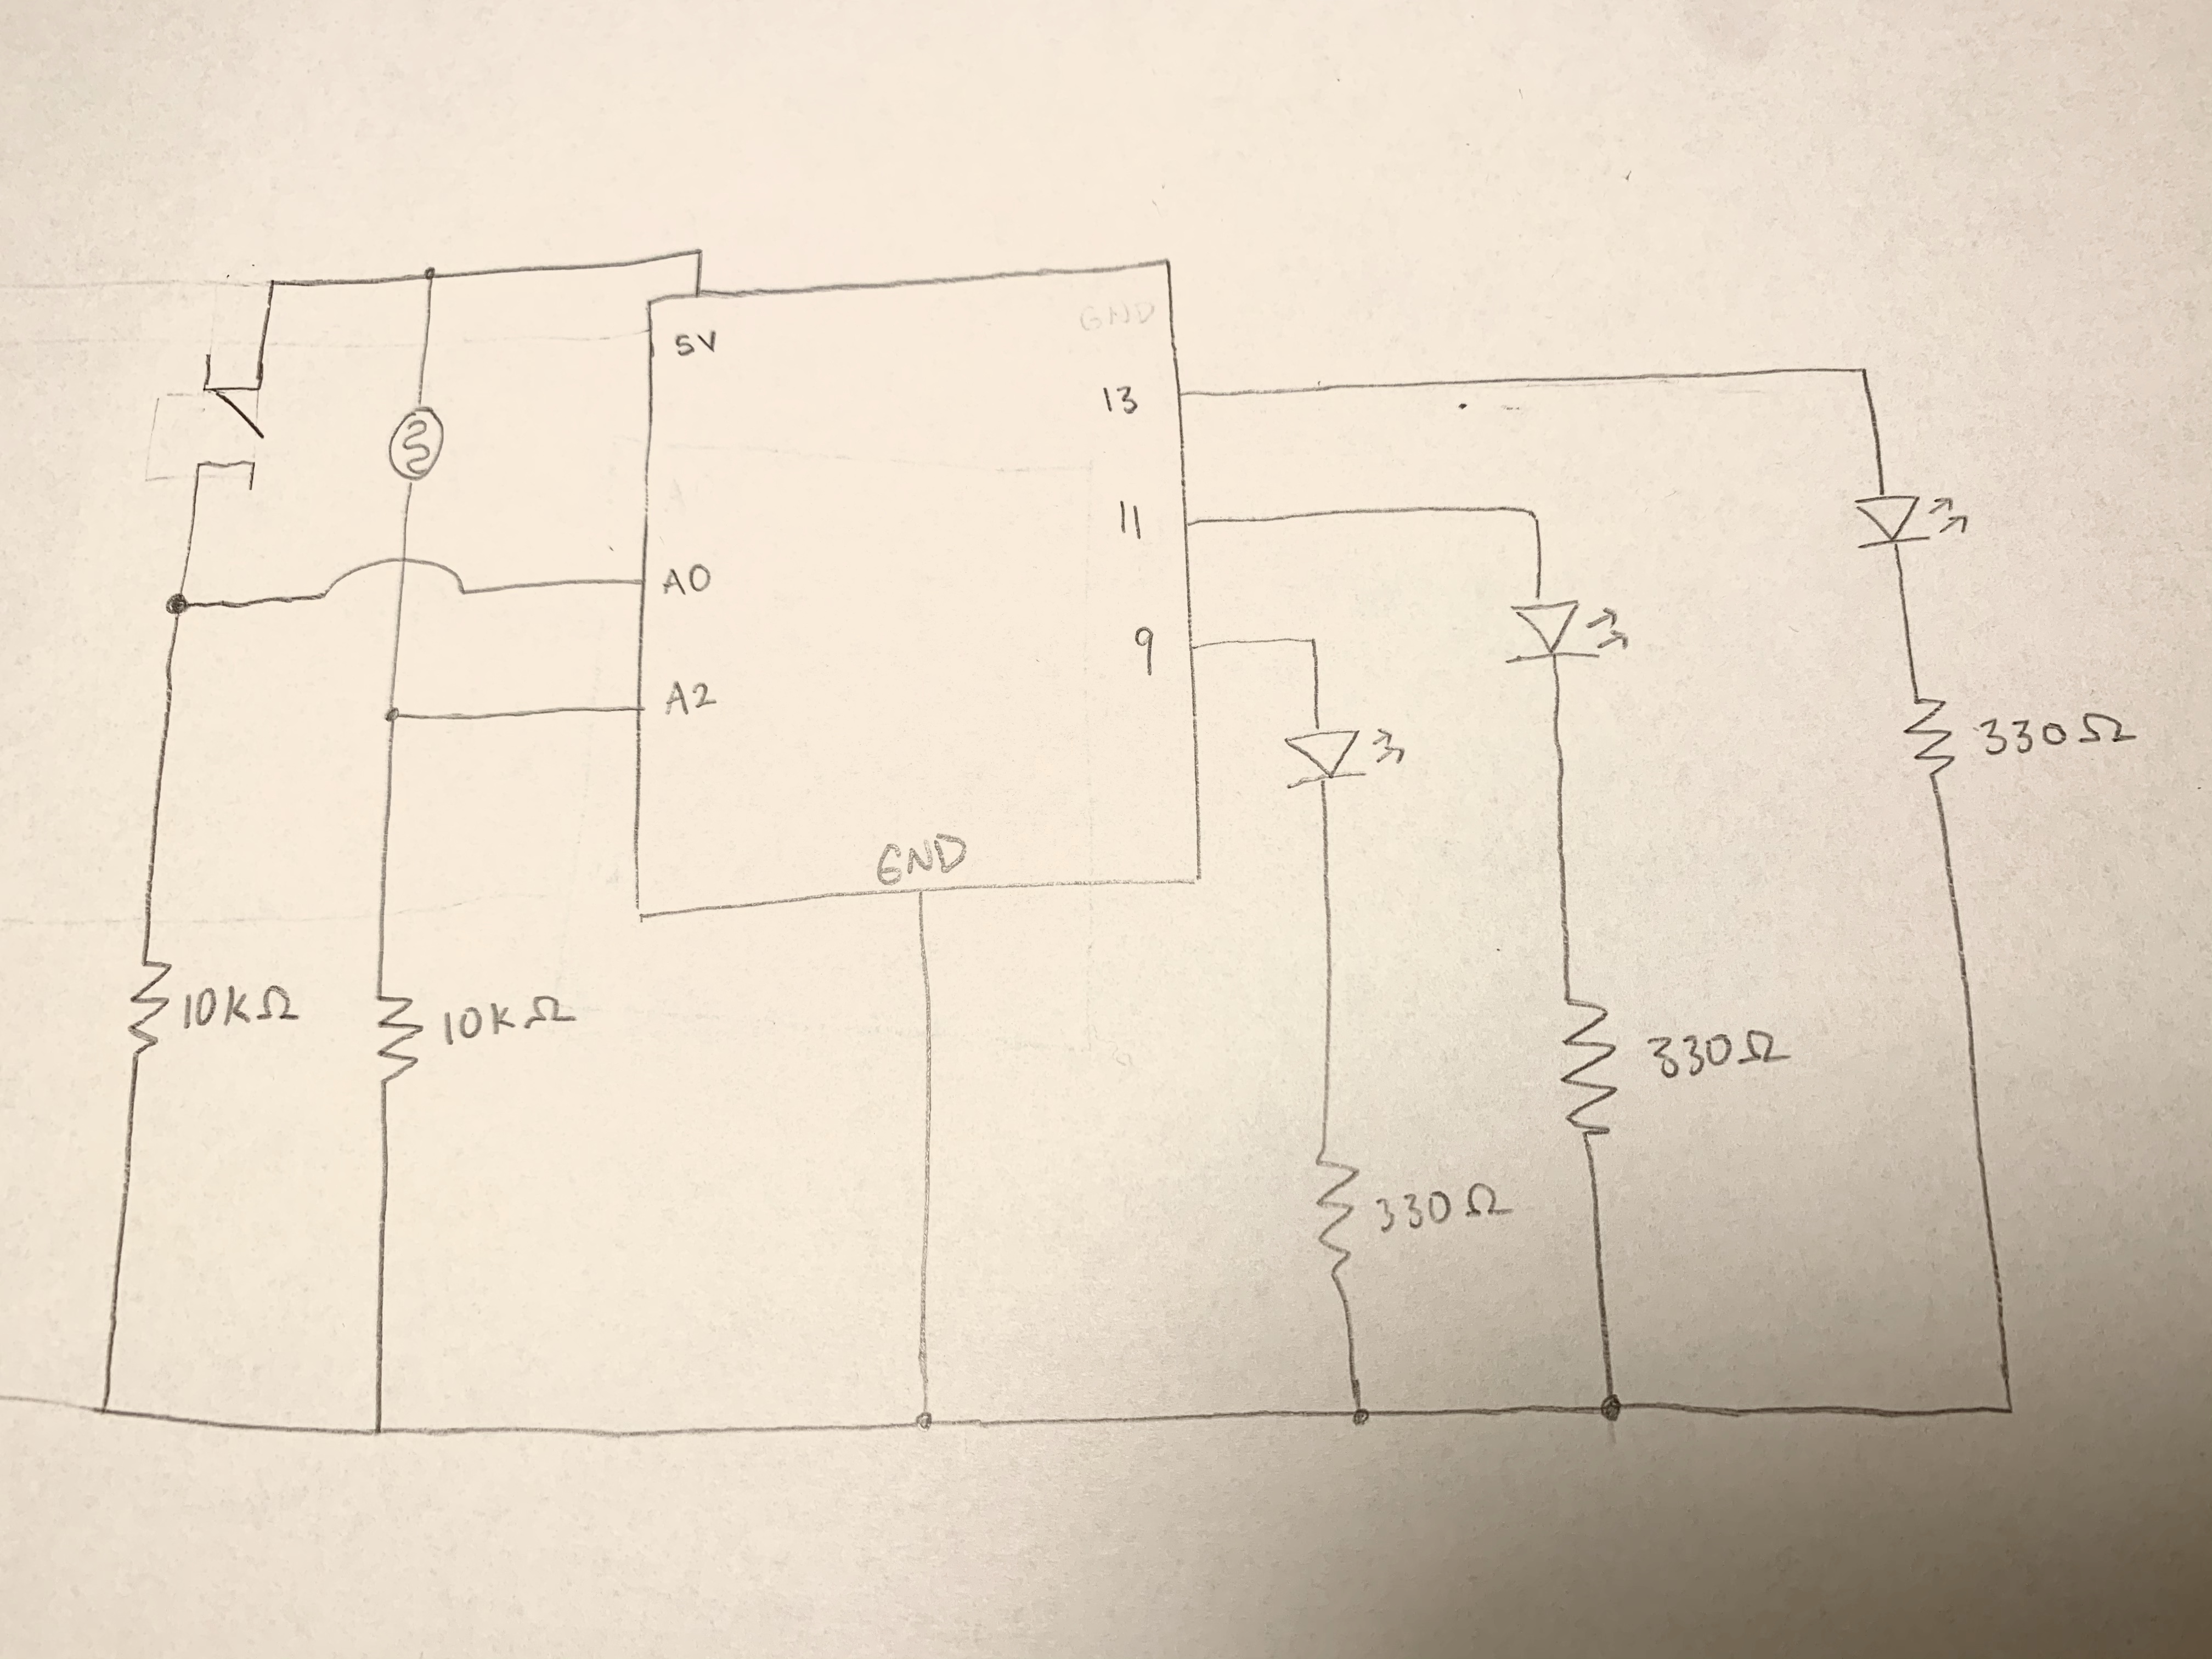 GND
5V
13
11
A0
9
A2
GND
10KΩ
10KΩ
330Ω
330Ω
330Ω